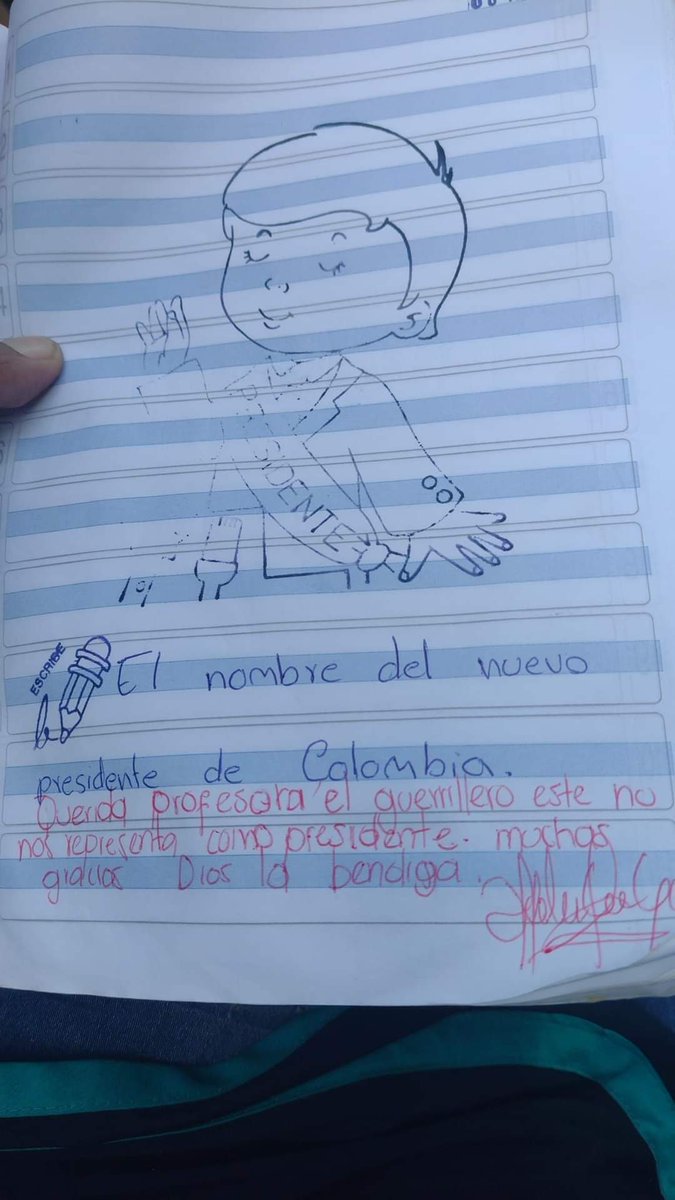 PRESIDENTE
ESCRIBE
El nombre del nuevo
presidente de Colombia.
Querida profesora el guerrillero este no
nos representa como presidente. muchas
gracias Dios la bendiga.